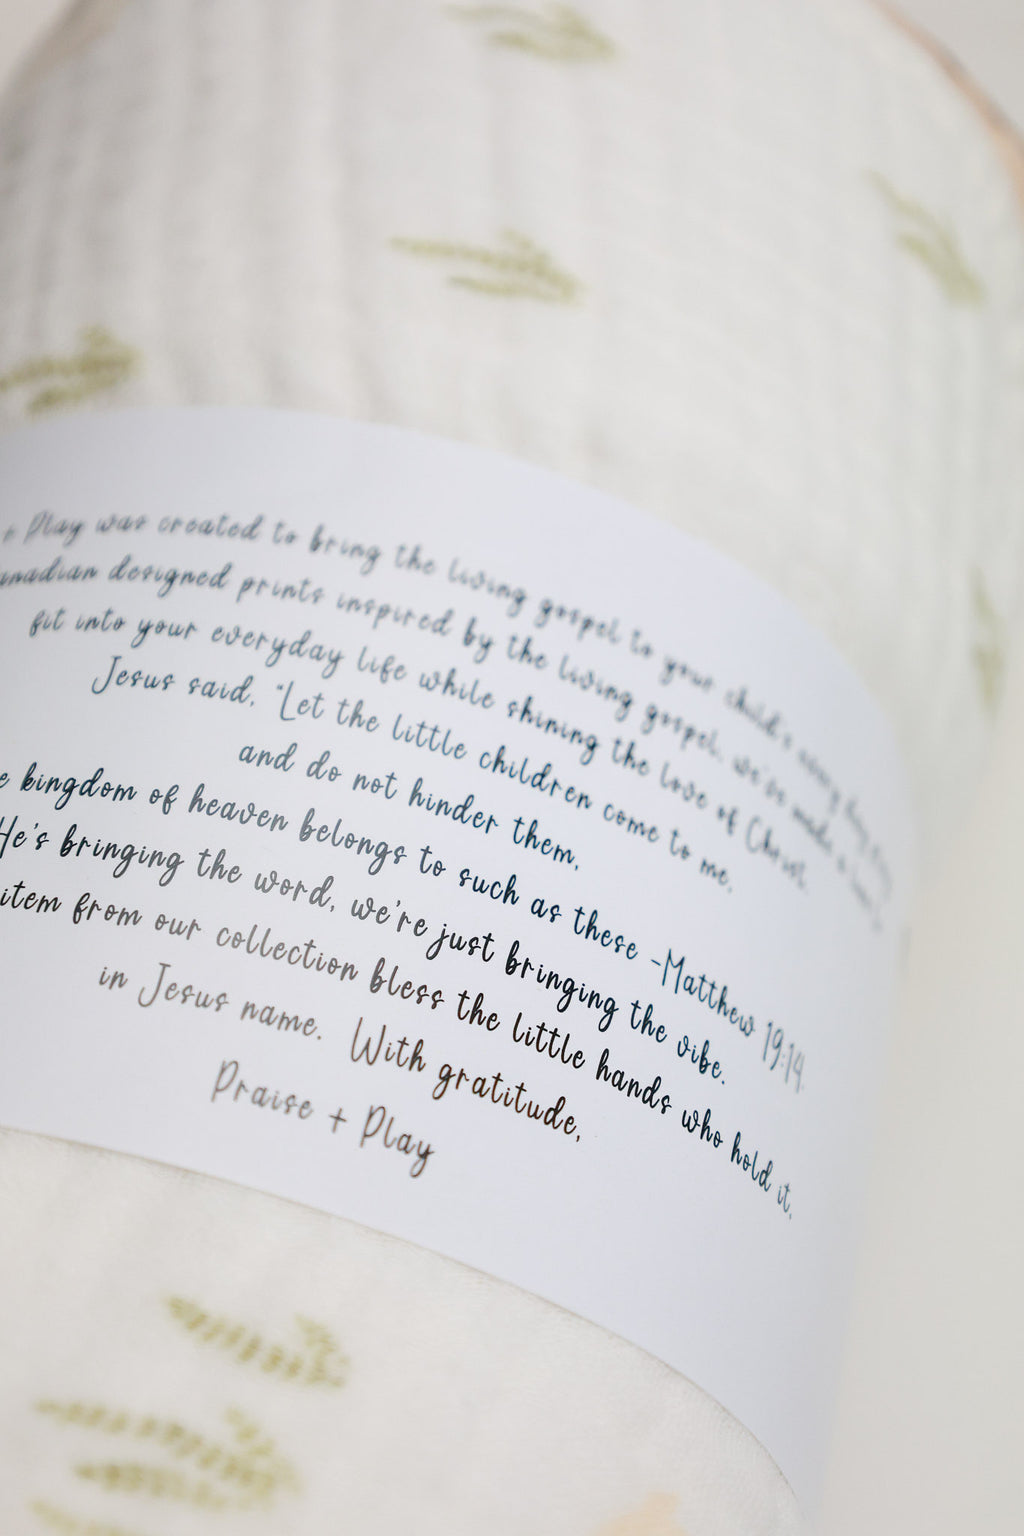 + Play was created to bring the living gospel to your child's every day
anadian designed prints inspired by the living gospel, we've made a
fit into your everyday life while shining the love of Christ.
Jesus said, "Let the little children come to me,
and do not hinder them,
e kingdom of heaven belongs to such as these -Matthew 19:14.
He's bringing the word, we're just bringing the vibe.
item from our collection bless the little hands who hold it,
in Jesus name. With gratitude,
Praise + Play